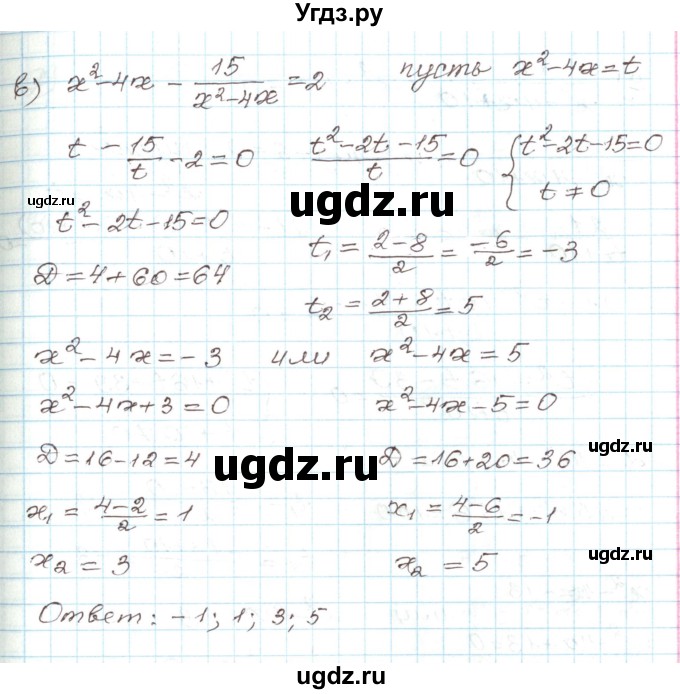 Угдз.ру
в) x²-4x - 15/(x²-4x) = 2 пусть x²-4x=t
t - 15/t - 2 = 0 (t²-2t-15)/t = 0 { t²-2t-15=0
t ≠ 0
ugdz.ru
ugdz.ru
t²-2t-15=0
ugdz.ru
t₁ = (2-8)/2 = -6/2 = -3
D = 4+60 = 64
t₂ = (2+8)/2 = 5
x²-4x = -3 или x²-4x = 5
x²-4x+3 = 0 x²-4x-5 = 0
D = 16-12 = 4 D = 16+20 = 36
ugdz.ru
x₁ = (4-2)/2 = 1 x₁ = (4-6)/2 = -1
x₂ = 3 x₂ = 5
ugdz.ru
Ответ: -1; 1; 3; 5
ugdz.ru